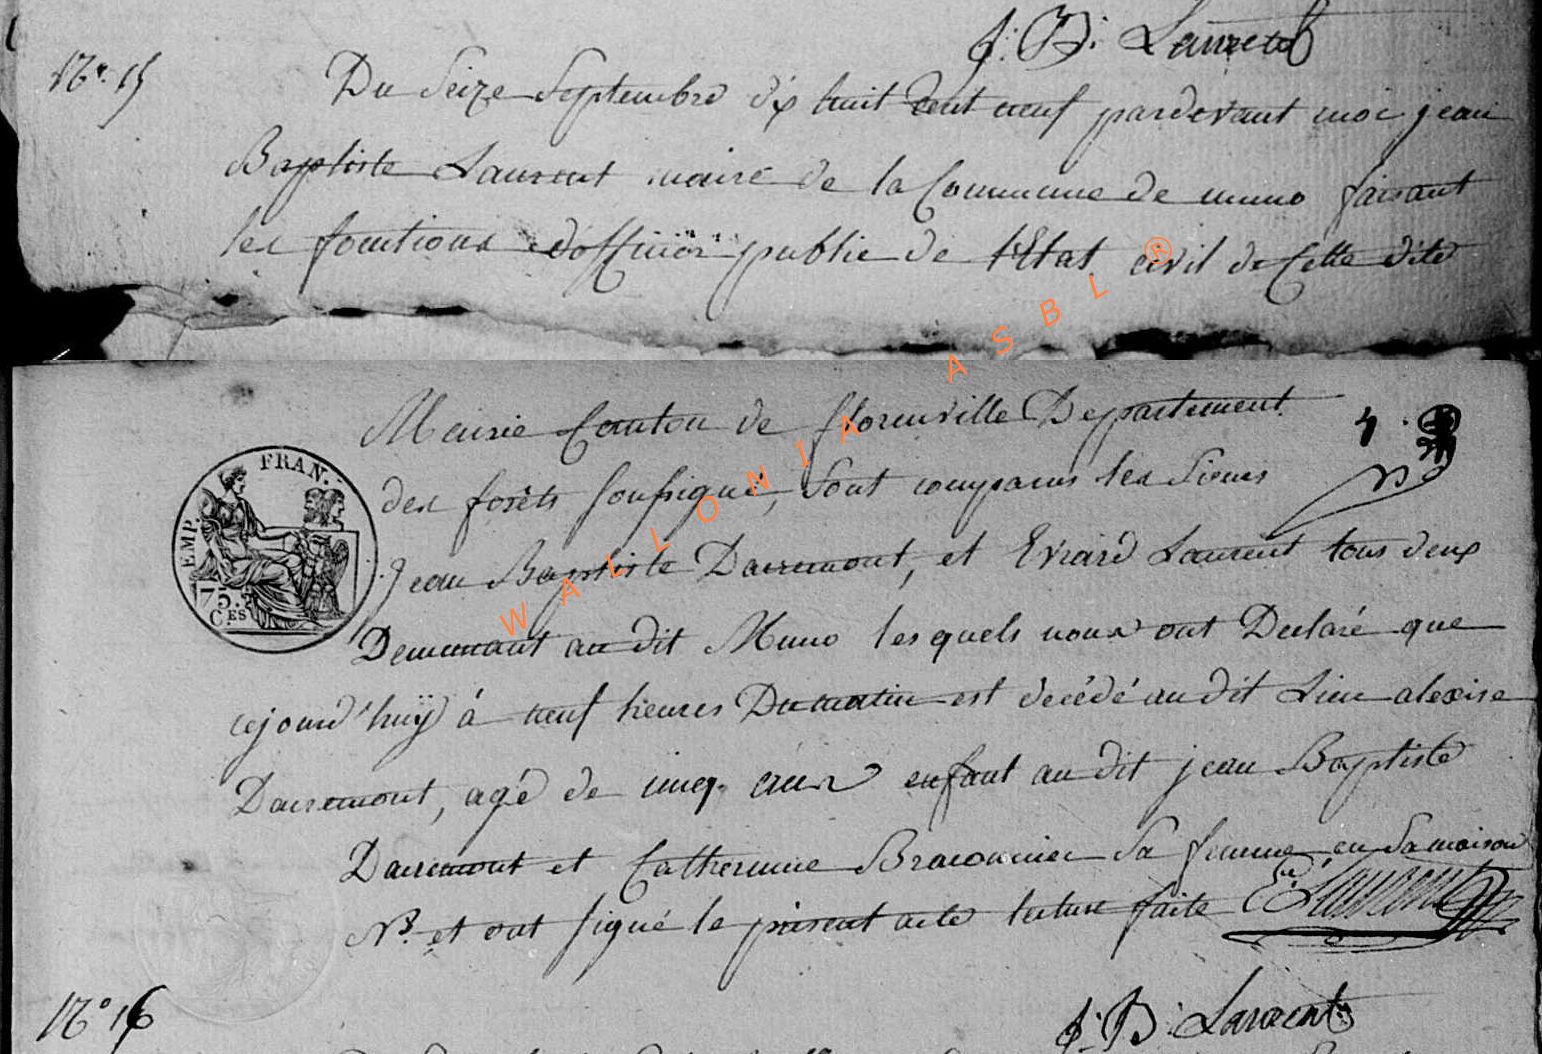 J: B: Laurent
N°. 15
Du Seize Septembre dix huit Cent neuf pardevant moi jean
Baptiste Laurent maire de la Commune de muno faisant
les fonctions d'officier public de l'Etat civil de Cette dite
Mairie Canton de florenville Departement
4.
des forêts soussigné, sont comparus les Sieurs
Jean Baptiste Dairemont, et Evrard Laurent tous deux
Demeurant au dit Muno lesquels nous ont Declaré que
cejourd'huÿ à neuf heures Du matin est décédé au dit Lieu alexise
Dairemont, agé de cinq ans enfant au dit jean Baptiste
Dairemont et Catherinne Braconnier Sa femme en Sa maison
N°. et ont signé le présent acte lecture faite E. Laurent
J: B: Laurent
N° 16
EMP. FRAN.
75. C.ES
WALLONIA ASBL ®